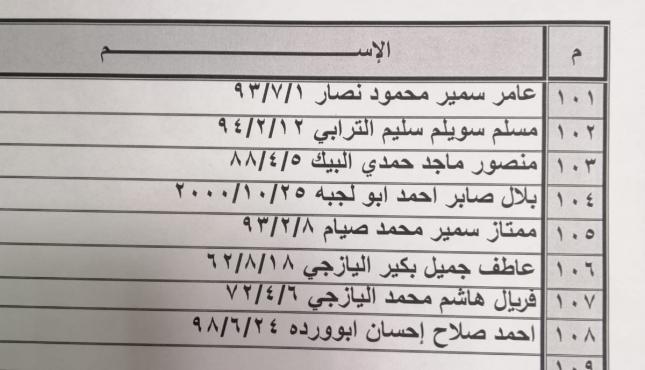 م الإســـــــــم
١٠١ عامر سمير محمود نصار ٩٣/٧/١
١٠٢ مسلم سويلم سليم الترابي ٩٤/٢/١٢
١٠٣ منصور ماجد حمدي البيك ٨٨/٤/٥
١٠٤ بلال صابر احمد ابو لجبه ٢٠٠٠/١٠/٢٥
١٠٥ ممتاز سمير محمد صيام ٩٣/٢/٨
١٠٦ عاطف جميل بكير اليازجي ٦٢/٨/١٨
١٠٧ فريال هاشم محمد اليازجي ٧٢/٤/٦
١٠٨ احمد صلاح إحسان ابوورده ٩٨/٦/٢٤
١٠٩